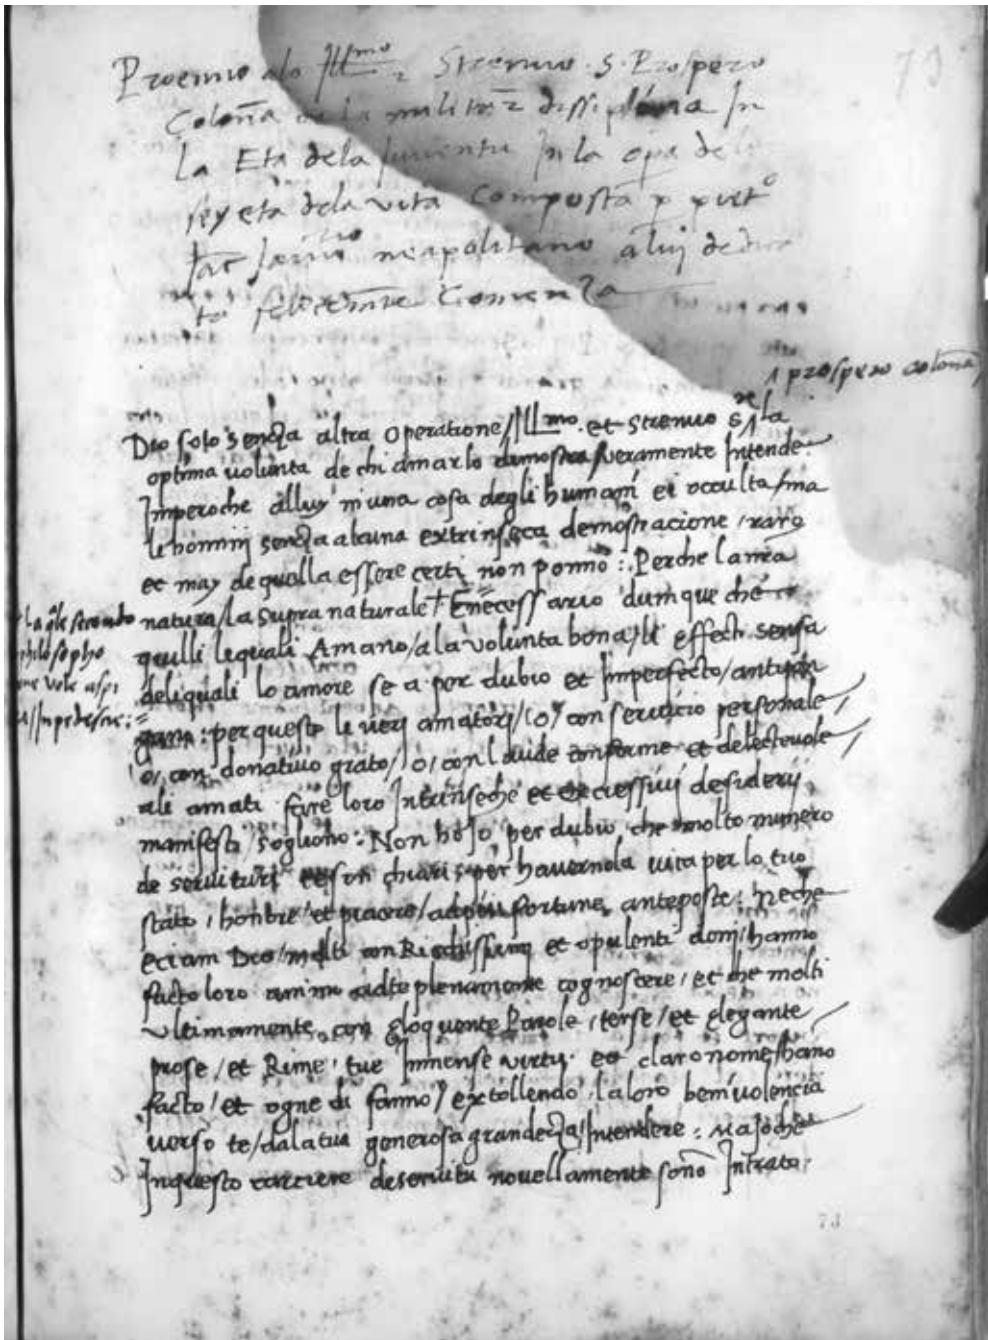 Proemio alo Ill^mo 2 Strenuo .S. Prospero
Colona de la militar dissiplina In
la Eta dela Juventu In la opa de
sey eta dela vita Composta p piet^o
Jac Jan neapolitano alui dedica
to felicemte Comenza
79
^ prospero colona
Dio solo senza altra operatione / Ill^mo. et strenuo S^re ^ la
optima volunta de chi amarlo demostra / veramente Intende.
Imperoche alluy niuna cosa degli humani ei occulta / ma
li homini senza alcuna extrinseca demostracione / raro
et may de quella essere certi non ponno : Perche la mia
natura / la supra naturale † E necessario dumque che
quilli liquali Amano / a la volunta bona / li effecti senza
deliquali lo amore se a per dubio et Imperfecto /
per questo li veri amatori / (o) con servicio personale /
o, con donativo grato / o, con laude conforme et delectevole /
ali amati fare loro Intrinseche et excessivi desiderij
manifesti sogliono : Non ho Io per dubio che molto numero
de servituri chiari per havernola vita per lo tuo
stato / honore et piacere / ad fortune anteposte : Neche
eciam Dio / molti con Richissimi et opulenti doni / hanno
facto loro animo adte plenamente cognoscere / et che molti
ultimamente con eloquente Parole, terse / et elegante
prose / et Rime / tue Immense virtu et claro nome / hano
facto / et ogne di fanno / extollendo la loro benivolencia
verso te / dala tua generosa grandeza Intendere : Ma Io che
In questo carcere de servitu novellamente sono Intrato
la qle secondo
philosopho
73